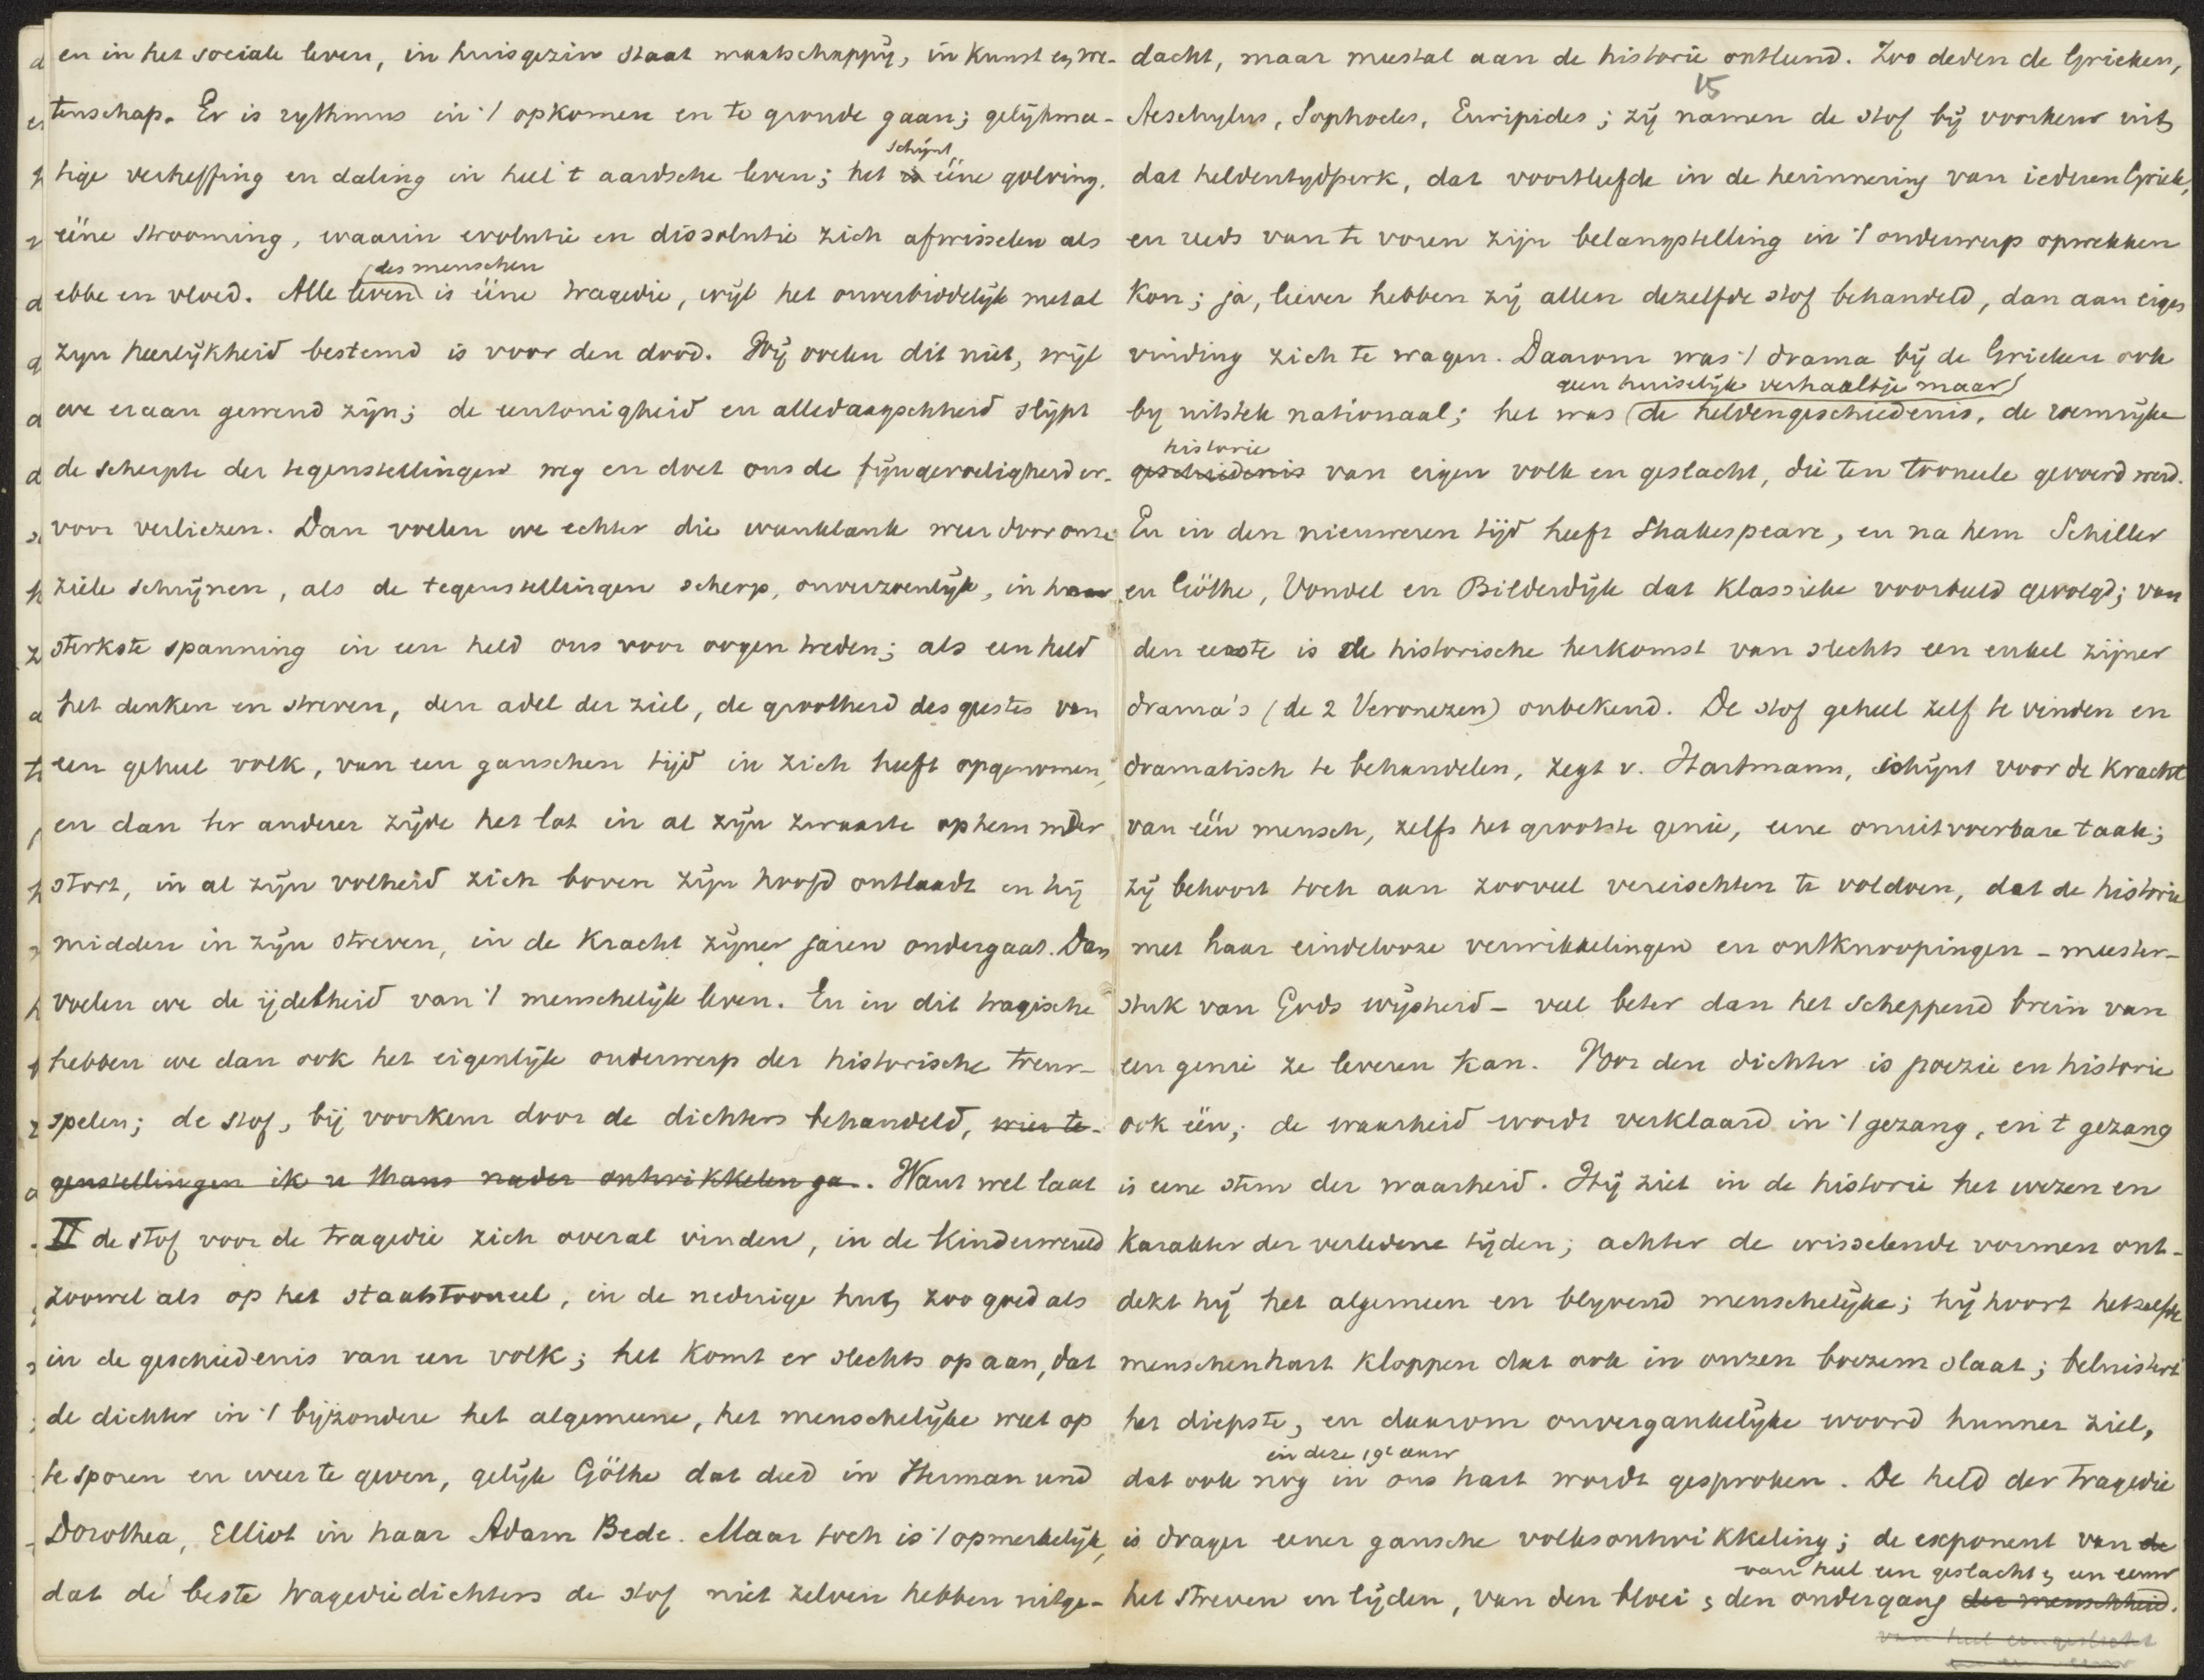 en in het sociale leven, in huisgezin staat maatschappij, in kunst en we-
tenschap. Er is rythmus in 't opkomen en te gronde gaan; gelijkma-
schijnt
tige verheffing en daling in heel 't aardsche leven; het is ééne golving,
ééne strooming, waarin evolutie en dissolutie zich afwisselen als
des menschen
ebbe en vloed. Alle leven is ééne tragedie, wijl het onverbiddelijk met al
zijn heerlijkheid bestemd is voor den dood. Wij voelen dit niet, wijl
we eraan gewend zijn; de eentonigheid en alledaagschheid slijpt
de scherpte der tegenstellingen weg en doet ons de fijngevoeligheid er-
voor verliezen. Dan voelen we echter die wanklank weer door onze
ziele schrijnen, als de tegenstellingen scherp, onverzoenlijk, in haar
sterkste spanning in een held ons voor oogen treden; als een held
het denken en streven, den adel der ziel, de grootheid des geestes van
een geheel volk, van een ganschen tijd in zich heeft opgenomen,
en dan ter anderer zijde het lot in al zijn zwaarte op hem neder
stort, in al zijn volheid zich boven zijn hoofd ontlaadt en hij
midden in zijn streven, in de kracht zijner jaren ondergaat. Dan
voelen we de ijdelheid van 't menschelijk leven. En in dit tragische
hebben we dan ook het eigenlijke onderwerp der historische treur-
spelen; de stof, bij voorkeur door de dichters behandeld, wier te-
genstellingen ik u thans nader ontwikkelen ga. Want wel laat
II de stof voor de tragedie zich overal vinden, in de kinderwereld
zoowel als op het staatstooneel, in de nederige hut, zoo goed als
in de geschiedenis van een volk; het komt er slechts op aan, dat
de dichter in 't bijzondere het algemeene, het menschelijke weet op
te sporen en weer te geven, gelijk Göthe dat deed in Herman und
Dorothea, Elliot in haar Adam Bede. Maar toch is 't opmerkelijk,
dat de beste tragediedichters de stof niet zelven hebben uitge-
dacht, maar meestal aan de historie ontleend. Zoo deden de Grieken,
15
Aeschylus, Sophocles, Euripides; zij namen de stof bij voorkeur uit
dat heldentijdperk, dat voortleefde in de herinnering van iederen Griek,
en reeds van te voren zijn belangstelling in 't onderwerp opwekken
kon; ja, liever hebben zij allen dezelfde stof behandeld, dan aan eigen
vinding zich te wagen. Daarom was 't drama bij de Grieken ook
geen huiselijk verhaaltje maar
bij uitstek nationaal; het was de heldengeschiedenis, de roemrijke
historie
geschiedenis van eigen volk en geslacht, die ten tooneele gevoerd werd.
En in den nieuweren tijd heeft Shakespeare, en na hem Schiller
en Göthe, Vondel en Bilderdijk dat klassieke voorbeeld gevolgd; van
den eerste is de historische herkomst van slechts een enkel zijner
drama's (de 2 Veronezen) onbekend. De stof geheel zelf te vinden en
dramatisch te behandelen, zegt v. Hartmann, schijnt voor de kracht
van één mensch, zelfs het grootste genie, eene onuitvoerbare taak;
zij behoort toch aan zooveel vereischten te voldoen, dat de historie
met haar eindelooze verwikkelingen en ontknoopingen - meester-
stuk van Gods wijsheid - veel beter dan het scheppend brein van
een genie ze leveren kan. Voor den dichter is poezie en historie
ook één; de waarheid wordt verklaard in 't gezang, en 't gezang
is eene stem der waarheid. Hij ziet in de historie het wezen en
karakter der verledene tijden; achter de wisselende vormen ont-
dekt hij het algemeen en blijvend menschelijke; hij hoort hetzelfde
menschenhart kloppen dat ook in onzen boezem slaat; beluistert
het diepste, en daarom onvergankelijke woord hunner ziel,
in deze 19e eeuw
dat ook nog in ons hart wordt gesproken. De held der tragedie
is drager eener gansche volksontwikkeling; de exponent van de
van heel een geslacht, en eeuw
het streven en lijden, van den bloei, den ondergang der menschheid.
van heel een geslacht